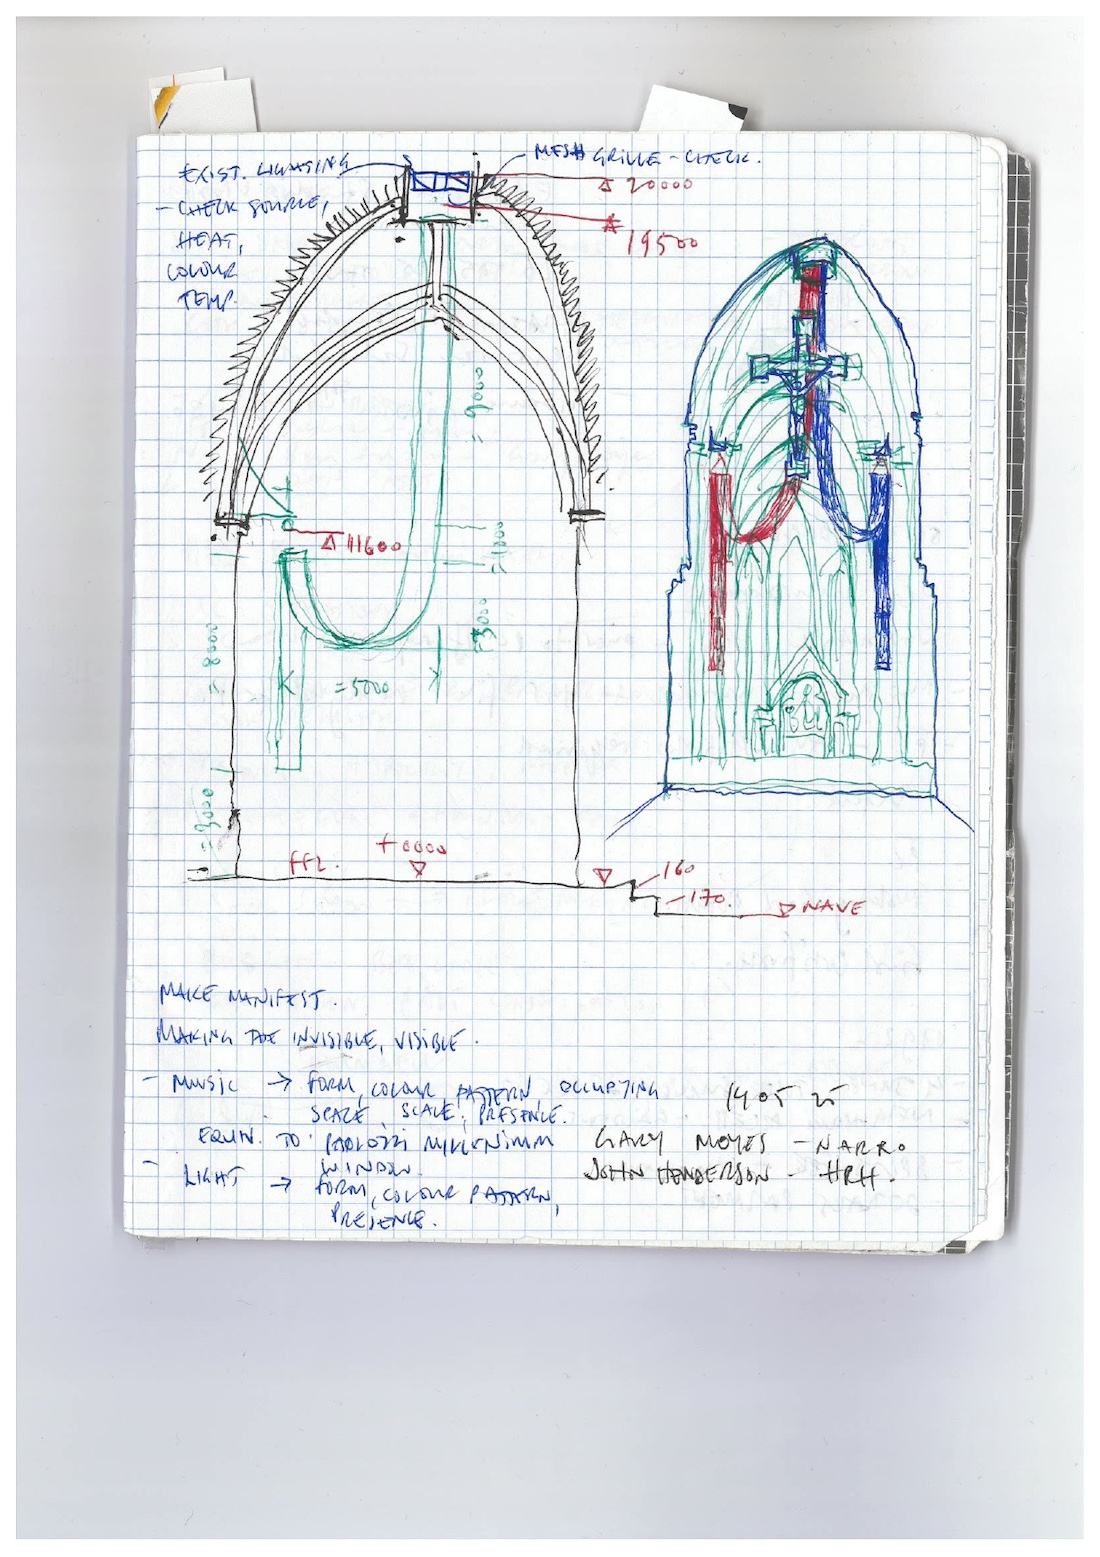 EXIST. LIGHTING
- CHECK SOURCE,
HEAT,
COLOUR
TEMP.
MESH GRILLE - CHECK.
20000
19500
= 9000
11600
= 1000
= 3000
= 8000
= 5000
= 3000
FFL.
+ 0000
160
170.
NAVE
MAKE MANIFEST.
MAKING THE INVISIBLE, VISIBLE.
- MUSIC → FORM, COLOUR, PATTERN, OCCUPYING
SPACE, SCALE, PRESENCE.
EQUIV. TO PAOLOZZI MILLENNIUM
WINDOW.
- LIGHT → FORM, COLOUR PATTERN,
PRESENCE.
14 05 25
GARY MOYES - NARRO
JOHN HENDERSON - HRH.